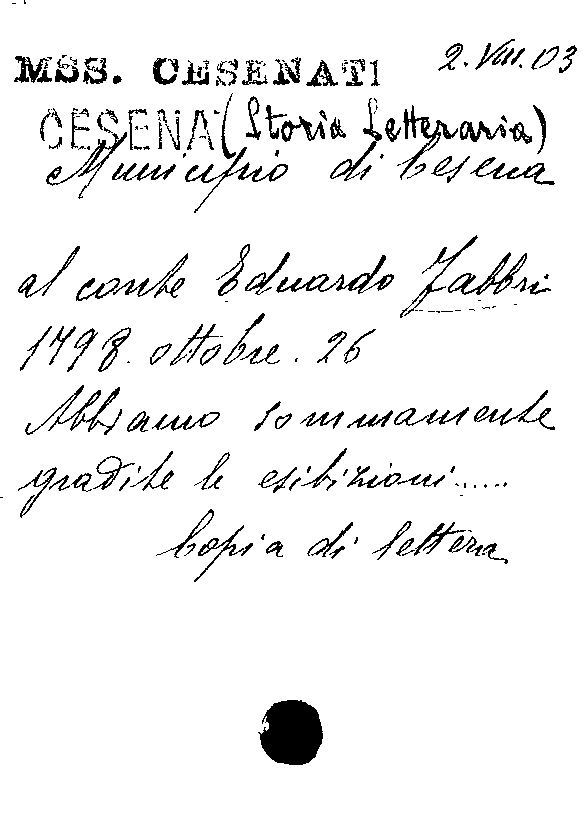 MSS. CESENATI 2.VIII.03
CESENA (Storia Letteraria)
Municipio di Cesena
al conte Eduardo Fabbri
1798. ottobre. 26
Abbiamo sommamente
gradite le esibizioni......
Copia di lettera